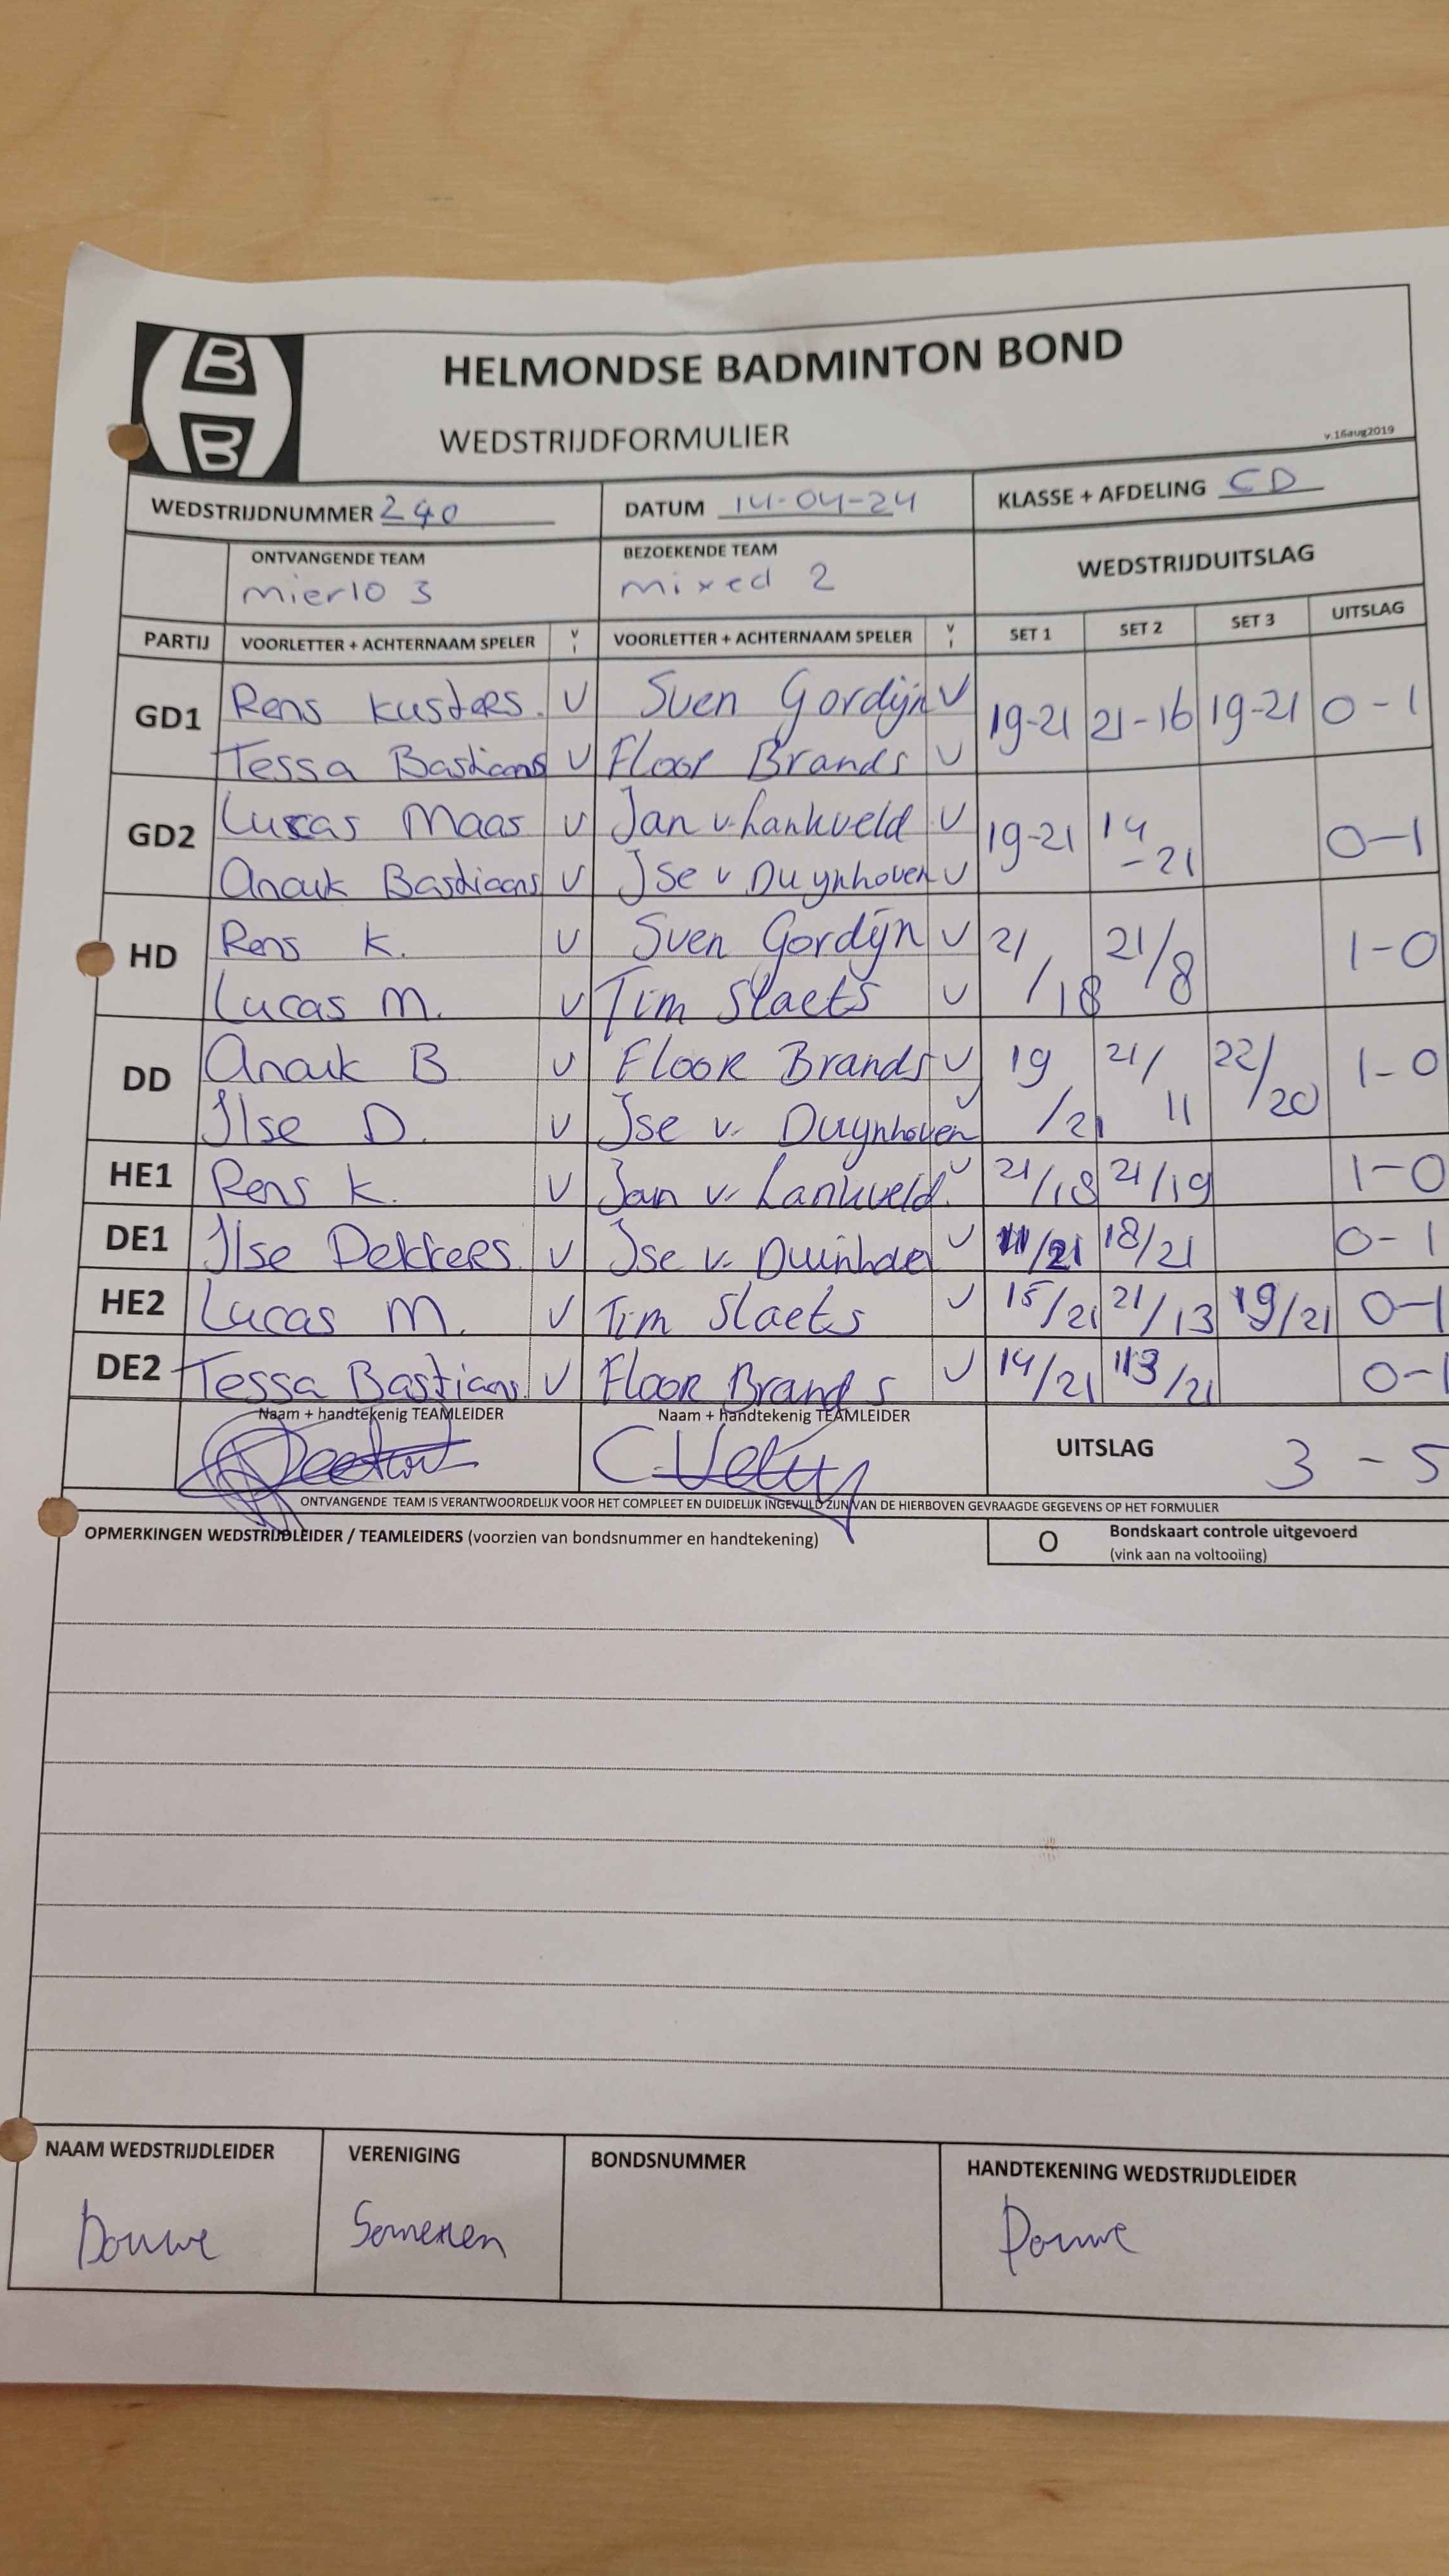 B
B
HELMONDSE BADMINTON BOND
WEDSTRIJDFORMULIER
v.16aug2019
WEDSTRIJDNUMMER 240 DATUM 14-04-24 KLASSE + AFDELING CD
ONTVANGENDE TEAM BEZOEKENDE TEAM WEDSTRIJDUITSLAG
mierlo 3 mixed 2
PARTIJ VOORLETTER + ACHTERNAAM SPELER V I VOORLETTER + ACHTERNAAM SPELER V I SET 1 SET 2 SET 3 UITSLAG
GD1 Rens Kusters. V Sven Gordijn V 19-21 21-16 19-21 0-1
Tessa Bastiaans V Floor Brands V
GD2 Lucas Maas V Jan v. Lankveld V 19-21 14-21 0-1
Anouk Bastiaans V Ise v Duynhoven V
HD Rens K. V Sven Gordijn V 21/18 21/8 1-0
Lucas M. V Tim Slaets V
DD Anouk B V Floor Brands V 19/21 21/11 22/20 1-0
Ilse D. V Ise v. Duynhoven V
HE1 Rens K. V Jan v. Lankveld. V 21/18 21/19 1-0
DE1 Ilse Dekkers V Ise v. V 11/21 18/21 0-1
HE2 Lucas M. V Tim Slaets V 15/21 21/13 19/21 0-1
DE2 Tessa Bastiaans V Floor Brands V 14/21 13/21 0-1
Naam + handtekenig TEAMLEIDER Naam + handtekenig TEAMLEIDER
UITSLAG 3 - 5
ONTVANGENDE TEAM IS VERANTWOORDELIJK VOOR HET COMPLEET EN DUIDELIJK INGEVULD ZIJN VAN DE HIERBOVEN GEVRAAGDE GEGEVENS OP HET FORMULIER
OPMERKINGEN WEDSTRIJDLEIDER / TEAMLEIDERS (voorzien van bondsnummer en handtekening)
O Bondskaart controle uitgevoerd
(vink aan na voltooiing)
NAAM WEDSTRIJDLEIDER VERENIGING BONDSNUMMER HANDTEKENING WEDSTRIJDLEIDER
Douwe Someren Douwe